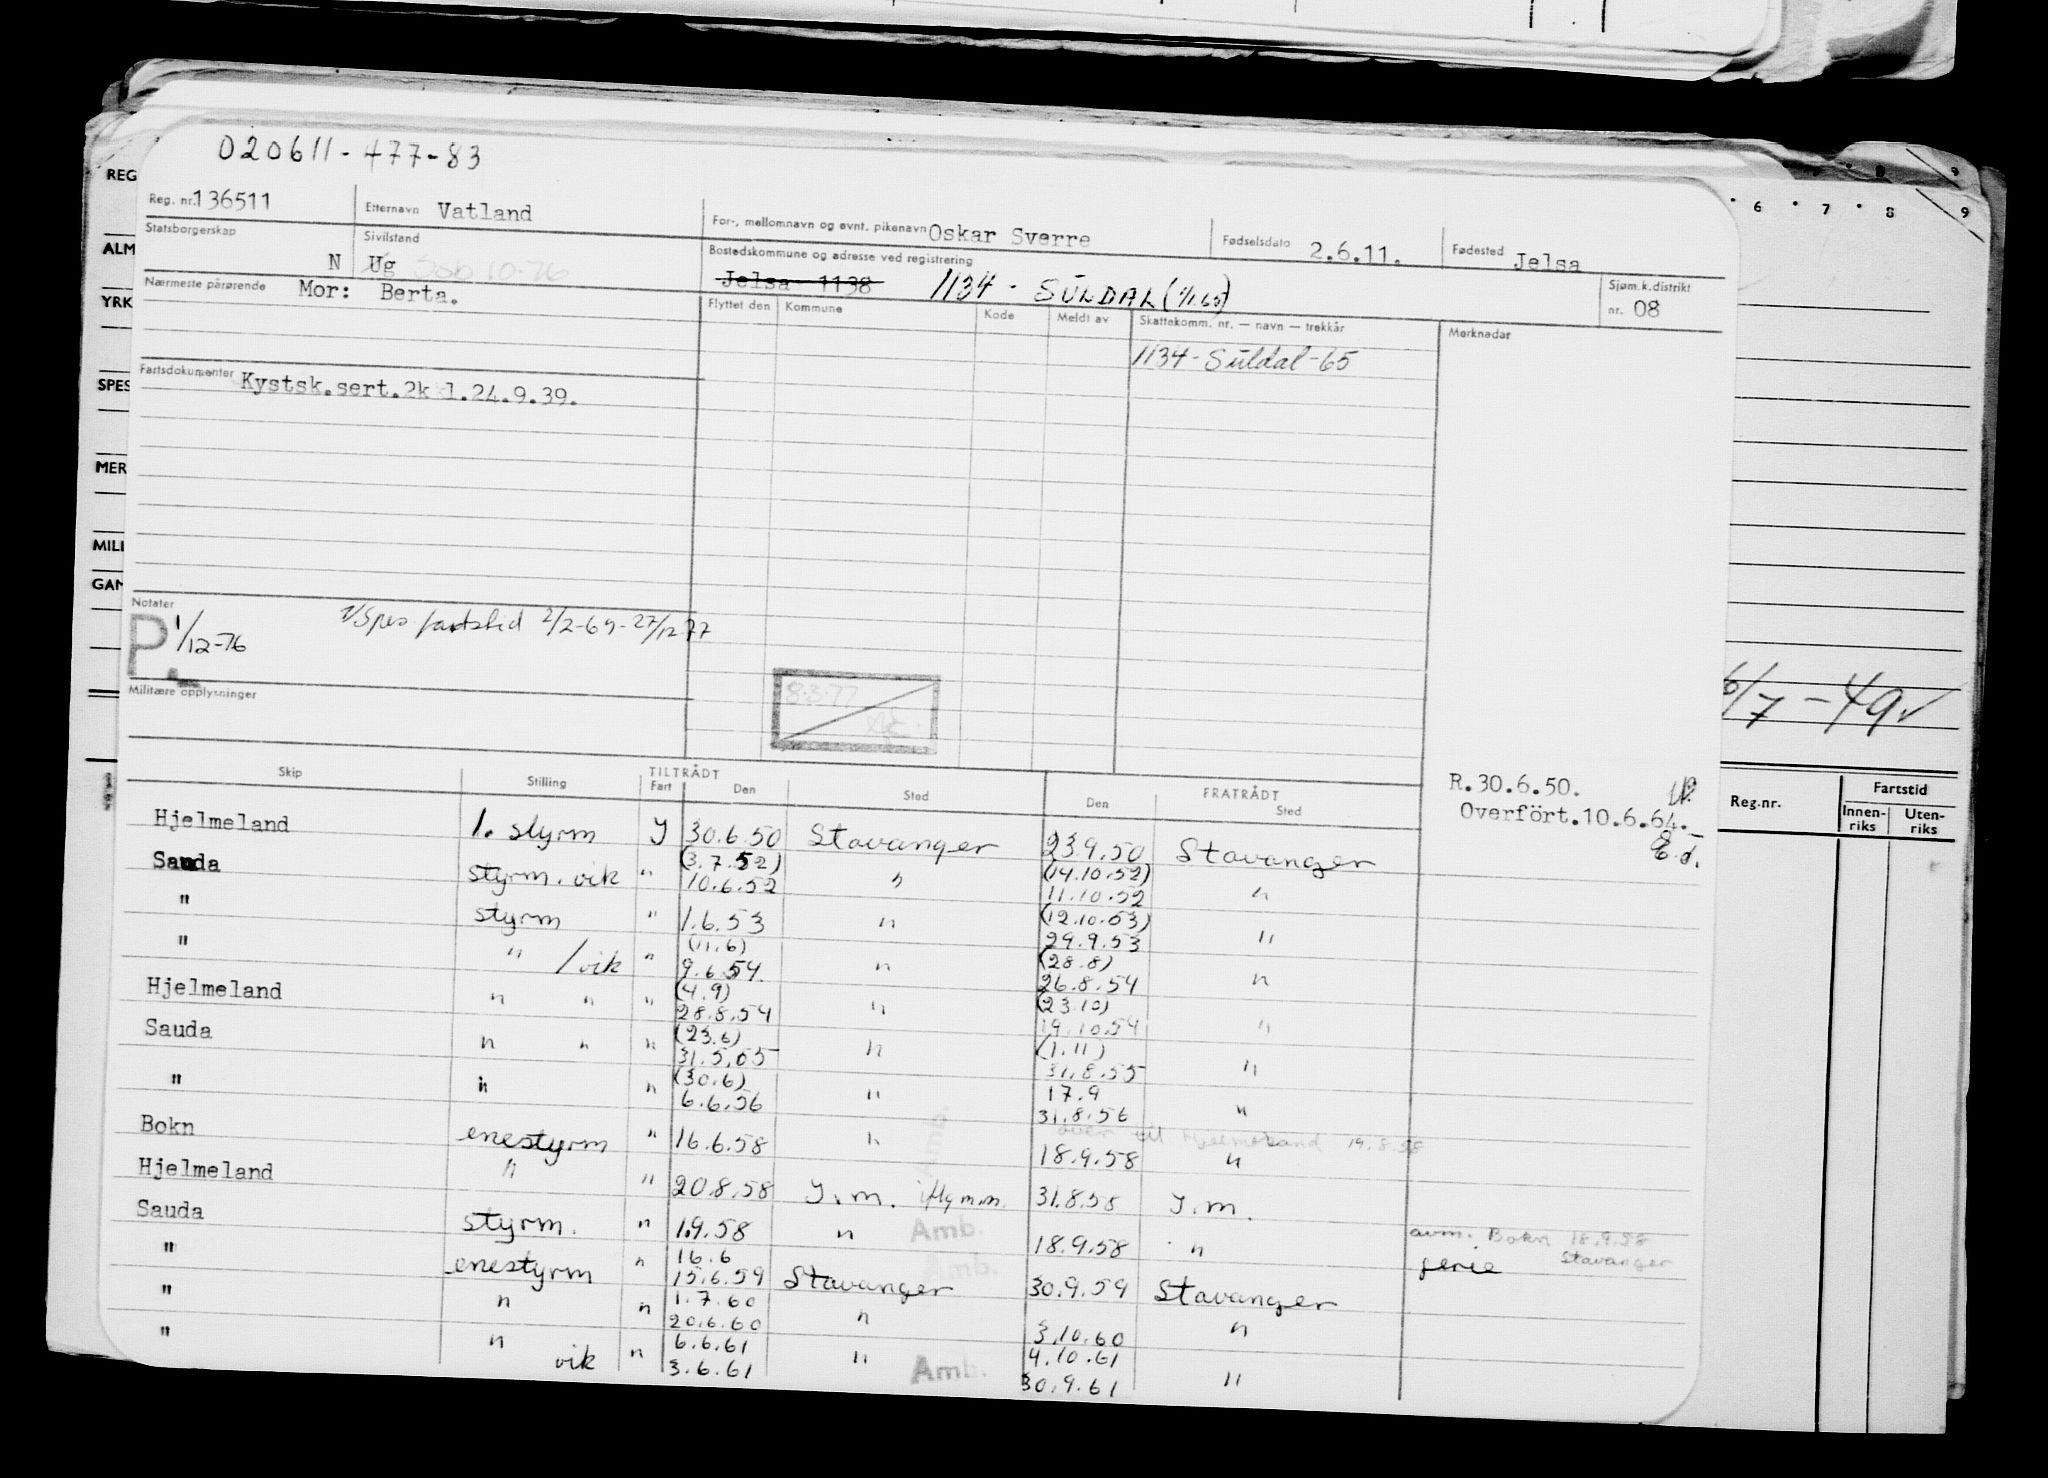 020611-477-83
Reg. nr. 136511 Etternavn Vatland For-, mellomnavn og evnt. pikenavn Oskar Sverre Fødselsdato 2.6.11. Fødested Jelsa
Statsborgerskap N Sivilstand Ug Ssb 10-76 Bostedskommune og adresse ved registrering Jelsa 1138 1134 - SULDAL (1/1.65) Sjøm.k.distrikt nr. 08
Nærmeste pårørende Mor: Berta.
Flyttet den Kommune Kode Meldt av Skattekomm. nr. — navn — trekkår Merknader
1134 - Suldal - 65
Fartsdokumenter Kystsk.sert.2k l.24.9.39.
Notater
P 1/12-76 Spes fartstid 2/2-69-27/12-77
8.3.77
Militære opplysninger
R.30.6.50.
Overfört.10.6.64.
E.d.
Skip Stilling TILTRÅDT Fart Den Sted FRATRÅDT Den Sted
Hjelmeland 1. styrm Y 30.6.50 Stavanger 23.9.50 Stavanger
Sauda styrm. vik " (3.7.52) 10.6.52 " (14.10.52) 11.10.52 "
" styrm " 1.6.53 " (12.10.53) 29.9.53 "
" " /vik " (11.6) 9.6.54. " (28.8) 26.8.54 "
Hjelmeland " " " (4.9) 28.8.54 " (23.10) 19.10.54 "
Sauda " " " (23.6) 31.5.55 " (1.11) 31.8.55 "
" " " (30.6) 6.6.56 " 17.9 31.8.56 "
over til Hjelmeland 19.8.58
Bokn enestyrm " 16.6.58 " 18.9.58 "
Hjelmeland " " 20.8.58 Y.m. 31.8.58 Y.m.
Sauda styrm. " 1.9.58 " Amb. 18.9.58 " avm. Bokn 18.9.58 Stavanger
" enestyrm " 16.6 15.6.59 Stavanger Amb. 30.9.59 Stavanger ferie
" " " 1.7.60 20.6.60 " 3.10.60 "
" " vik " 6.6.61 3.6.61 " Amb. 4.10.61 30.9.61 "
REG
ALM
YRK
SPES
MER
MILI
GAN
6 7 8 9
8 9
6/7 - 49
Reg.nr. Fartstid
Innenriks Utenriks